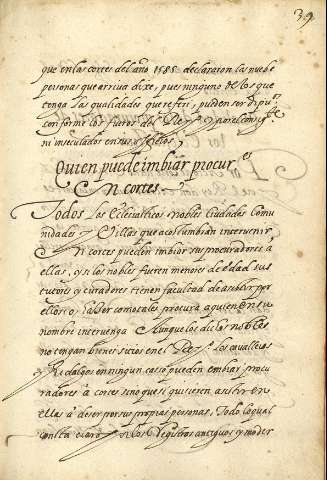 39
que en las cortes del año 1585 declararon las nuebe
personas que arriva dixe, pues ninguno de los que
tenga las qualidades que referi, pueden ser dipu^dos
conforme los fueros del Rey^no, ni por el consig^te
ni inseculados en sus officios
Quien puede imbiar procur^es
En cortes
Todos los Eclesiasticos nobles Ciudades Comu
nidades y Villas que acostumbran intervenir
En cortes pueden imbiar sus procuradores à
ellas, y si los nobles fueren menores de edad sus
tutores y curadores tienen facultad de asistir por
ellos o hazer como tales procura a quien en su
nombre intervenga Aunque los dichos nobles
no tengan bienes sitios en el Rey^no. los cavalleros
e Hidalgos en ningun caso pueden embiar procu
radores à cortes sino que si quisieren asistir en
ellas à de ser por sus propias personas, Todo lo qual
consta claro de los Registros antiguos y moder